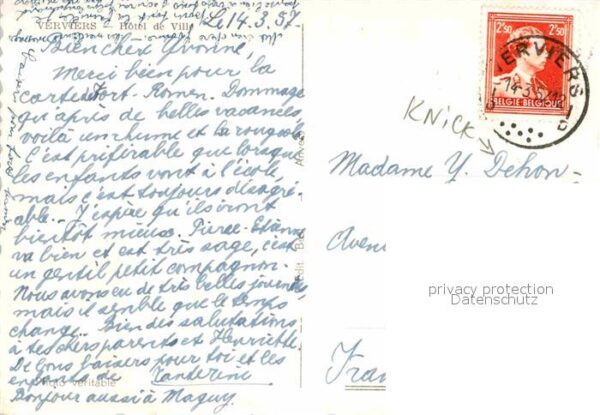 VERVIERS - Hôtel de Ville
Le 14.3.57
Bien chère Yvonne,
Merci bien pour la
carte de Font-Romeu. Dommage
qu'après de belles vacances
voilà un rhume et la rougeole
C'est préférable que lorsque
les enfants vont à l'école,
mais c'est toujours désagré-
able.- J'espère qu'ils iront
bientôt mieux. Pierre-Etienne
va bien et est très sage, c'est
un gentil petit compagnon.
Nous avons eu de très belles journées
mais il semble que le temps
change. Bien des salutations
à tes chers parents et Henriette
De gros baisers pour toi et les
enfants de Tanterini
Photo véritable
Bonjour aussi à Maguy
2F50 2F50
BELGIE-BELGIQUE
VERVIERS
14-3.57
D
KNICK
Madame Y. Dehon-
Avenu
privacy protection
Datenschutz
Fran